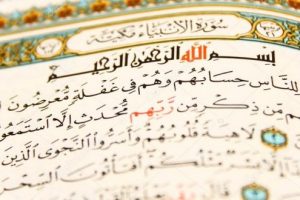 سُورَةُ الْأَنْبِيَاءِ مَكِّيَّةٌ
بِسْمِ اللَّهِ الرَّحْمَٰنِ الرَّحِيمِ
لِلنَّاسِ حِسَابُهُمْ وَهُمْ فِي غَفْلَةٍ مُعْرِضُونَ
مِنْ ذِكْرٍ مِنْ رَبِّهِمْ مُحْدَثٍ إِلَّا اسْتَمَعُو
لَاهِيَةً قُلُوبُهُمْ وَأَسَرُّوا النَّجْوَى الَّذِينَ
مِثْلُكُمْ أَفَتَأْتُونَ السِّحْرَ